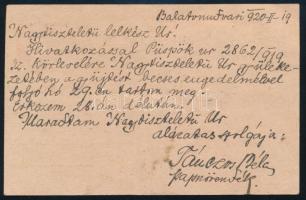 Balatonudvari 920-II-19
Nagytiszteletű lelkész Úr!
Hivatkozással Püspök úr 2862/919
sz. körlevelére Nagytiszteletű Úr gyüleke-
zetében a gyűjtést becses engedelmével
folyó hó 29.én tartom meg.
Érkezem 28.án délután.
Maradtam Nagytiszteletű Úr
alázatos szolgája:
Tánczos Béla
papnövendék.